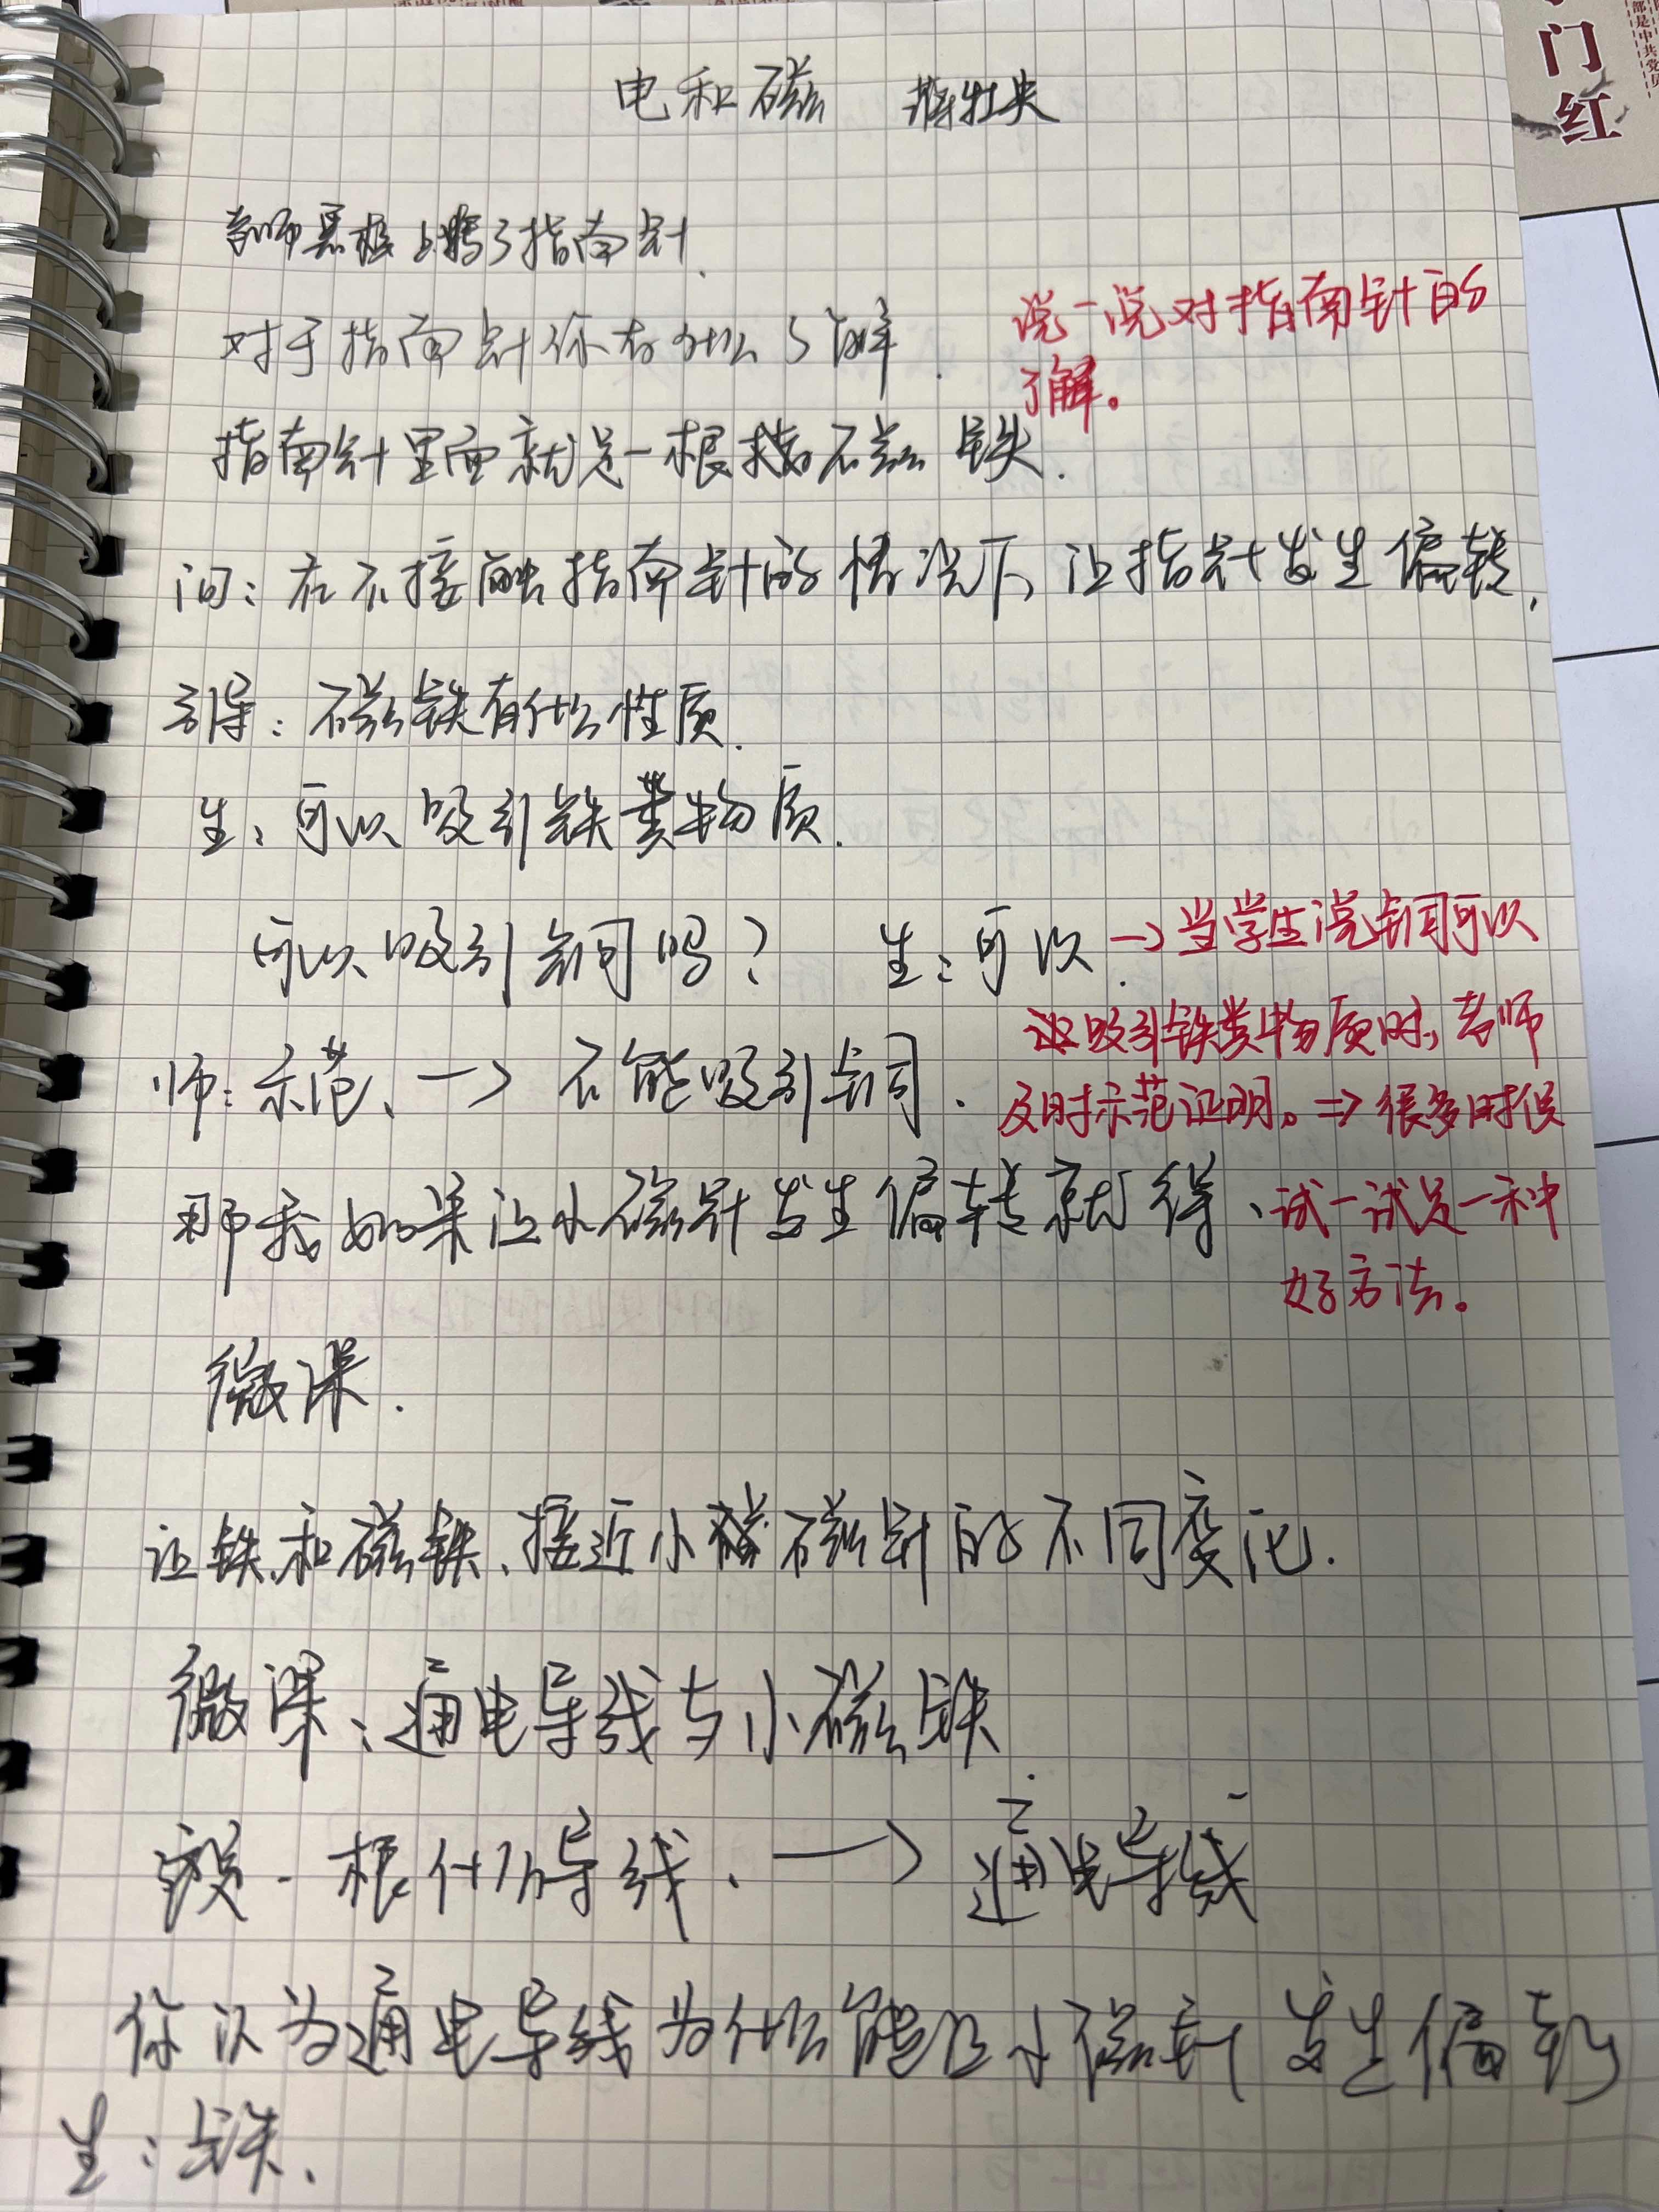 门红
电和磁
老师黑板上贴了指南针.
对于指南针你有什么了解.
说一说对指南针的
了解。
指南针里面就是一根 磁铁.
问:在不接触指南针的情况下,让指针发生偏转,
引导:磁铁有什么性质.
生:可以吸引铁类物质.
可以吸引铜吗? 生:可以.
→当学生说铜可以
吸引铁类物质时,老师
及时示范证明。⇒很多时候
试一试是一种
好方法。
师:示范、→不能吸引铜.
那我如果让小磁针发生偏转就得、
微课.
让铁和磁铁、接近小磁针的不同变化.
微课、通电导线与小磁铁.
一根什么导线、→通电导线
你认为通电导线为什么能让小磁针发生偏转
生:铁、